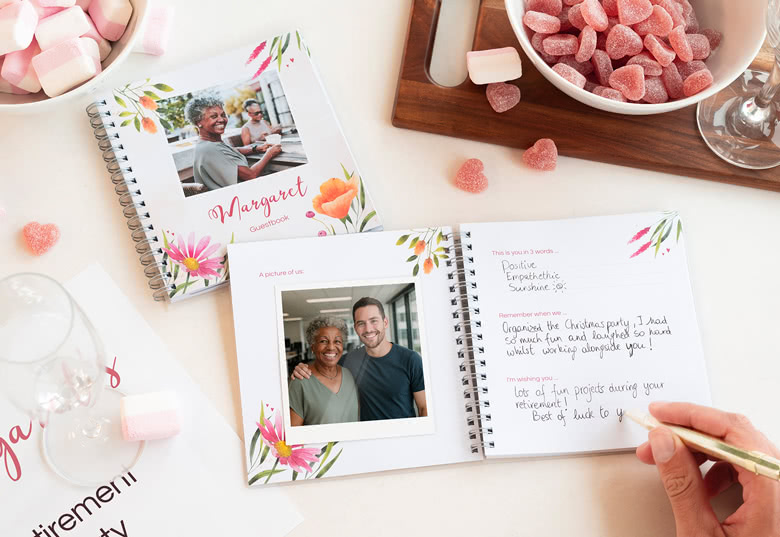 Margaret
Guestbook
A picture of us:
This is you in 3 words ...
Positive
Empathethic
Sunshine
Remember when we ...
Organized the Christmasparty, I had
so much fun and laughed so hard
whilst working alongside you!
I'm wishing you ...
Lots of fun projects during your
retirement!
Best of luck to y
ga
etirement
ty